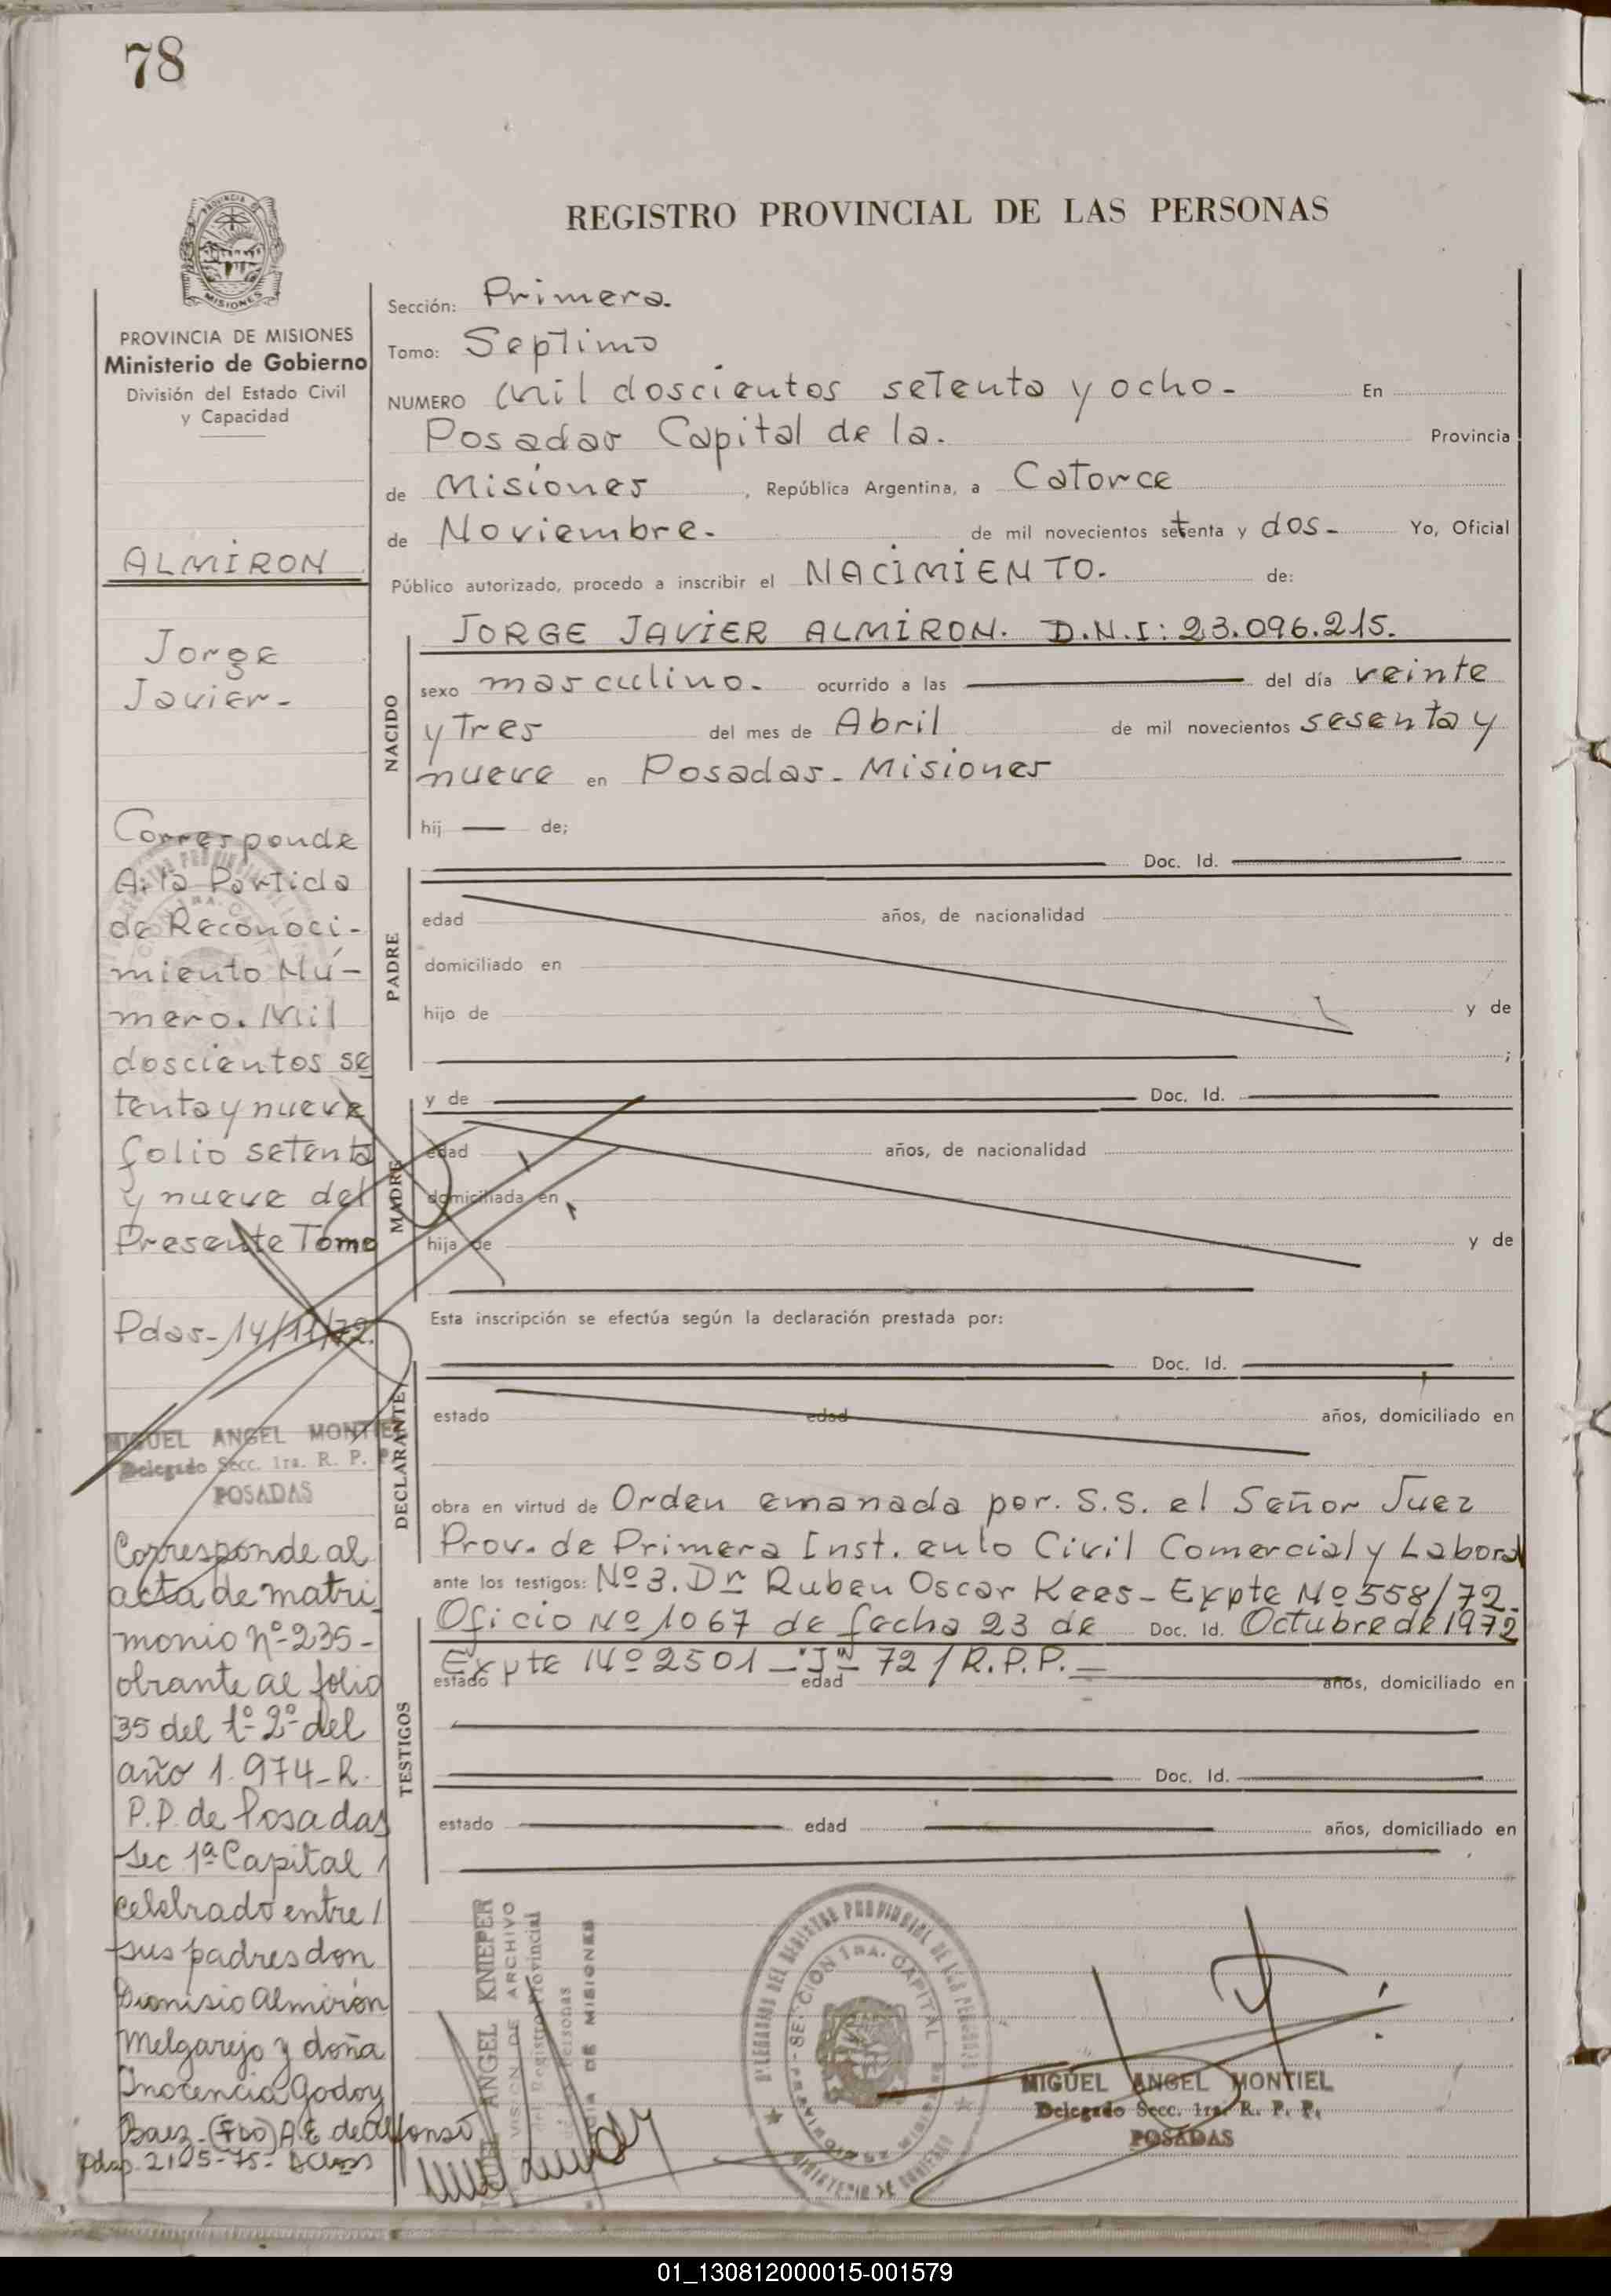 78
REGISTRO PROVINCIAL DE LAS PERSONAS
MISIONES
PROVINCIA DE MISIONES
Ministerio de Gobierno
División del Estado Civil
y Capacidad
ALMIRON
Jorge
Javier-
Corresponde
A la Partida
de Reconoci-
miento Nú-
mero. Mil
doscientos se
tenta y nueve
folio setenta
y nueve del
Presente Tomo
Pdas-14/11/72.
MIGUEL ANGEL MONTIEL
Delegado Secc. 1ra. R. P. P.
POSADAS
Corresponde al
acta de matri
monio nº-235-
obrante al folio
35 del tº 2º del
año 1.974-R.
P.P. de Posadas
Sec 1ª Capital /
celebrado entre /
sus padres don
Dionisio Almirón
Melgarejo y doña
Inocencia Godoy
Baez-(Fdo) A E de Alfonso
Pdas. 2105-75-
Sección: Primera.
Tomo: Septimo
NUMERO Mil doscientos setenta y ocho- En
Posadas Capital de la. Provincia
de Misiones, República Argentina, a Catorce
de Noviembre. de mil novecientos setenta y dos- Yo, Oficial
Público autorizado, procedo a inscribir el NACIMIENTO. de:
JORGE JAVIER ALMIRON. D.N.I: 23.096.215.
NACIDO
sexo masculino. ocurrido a las del día veinte
y Tres del mes de Abril de mil novecientos sesenta y
nueve en Posadas-Misiones
hij de;
Doc. Id.
PADRE
edad años, de nacionalidad
domiciliado en
hijo de y de
;
y de Doc. Id.
MADRE
edad años, de nacionalidad
domiciliada en
hija de y de
Esta inscripción se efectúa según la declaración prestada por:
Doc. Id.
DECLARANTE
estado edad años, domiciliado en
obra en virtud de Orden emanada por. S.S. el Señor Juez
Prov. de Primera Inst. en lo Civil Comercial y Laboral
ante los testigos: Nº3. Dr Ruben Oscar Kees-Expte Nº558/72.
Oficio Nº1067 de fecha 23 de Doc. Id. Octubre de 1972
Expte Nº2501-"J"-72/R.P.P.=
estado edad años, domiciliado en
TESTIGOS
Doc. Id.
estado edad años, domiciliado en
ANGEL KNIEPER
ARCHIVO
del Registro Provincial
de las Personas
DE MISIONES
SECCION 1RA. CAPITAL
MIGUEL ANGEL MONTIEL
Delegado Secc. 1ra. R. P. P.
POSADAS
01_130812000015-001579